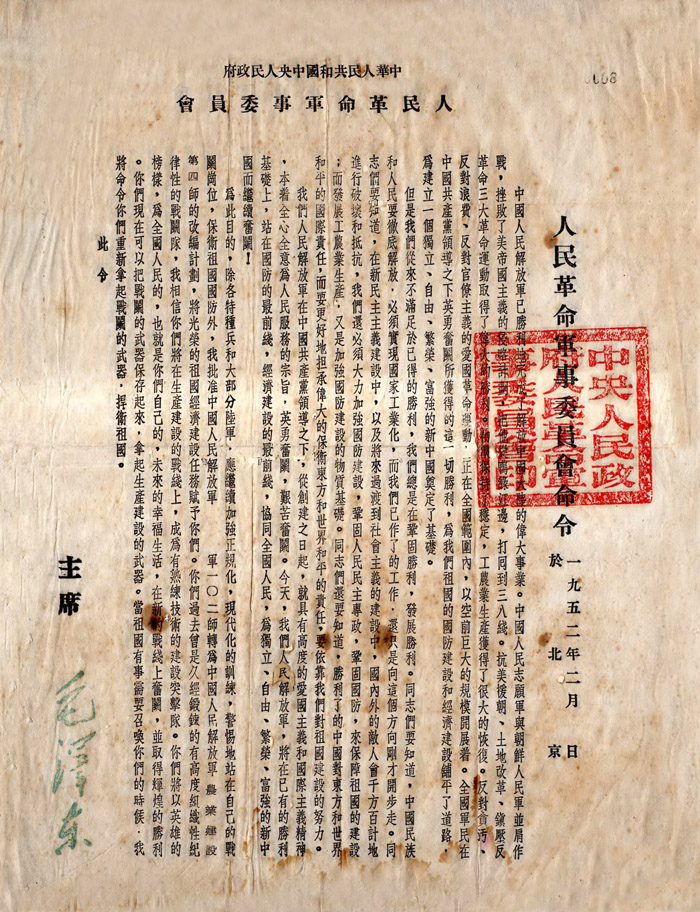 中華人民共和國中央人民政府
人民革命軍事委員會
人民革命軍事委員會命令
一九五二年二月　日
於北京
中國人民解放軍已勝利地完成了解放中國大陸的偉大事業。中國人民志願軍與朝鮮人民軍並肩作
戰，挫敗了美帝國主義的侵略計劃，把他從鴨綠江邊，打囘到三八綫。抗美援朝、土地改革、鎭壓反
革命三大革命運動取得了偉大的勝利。物價保持了穩定，工農業生產獲得了很大的恢復。反對貪汚、
反對浪費、反對官僚主義的愛國革命運動，正在全國範圍內，以空前巨大的規模開展着。全國軍民在
中國共產黨領導之下英勇奮鬭所獲得的這一切勝利，爲我們祖國的國防建設和經濟建設鋪平了道路，
爲建立一個獨立、自由、繁榮、富強的新中國奠定了基礎。
但是我們從來不滿足於已得的勝利，我們總是在鞏固勝利，發展勝利。同志們要知道，中國民族
和人民要徹底解放，必須實現國家工業化，而我們已作了的工作，還只是向這個方向剛才開步走。同
志們要知道，在新民主主義建設中，以及將來過渡到社會主義的建設中，國內外的敵人會千方百計地
進行破壞和抵抗，我們還必須大力加強國防建設，鞏固人民民主專政，鞏固國防，來保障祖國的建設
；而發展工農業生產，又是加強國防建設的物質基礎。同志們還要知道，勝利了的中國對東方和世界
和平的國際責任，而要更好地担承偉大的保衛東方和世界和平的責任，要依靠我們對祖國建設的努力。
我們人民解放軍在中國共產黨領導之下，從創建之日起，就具有高度的愛國主義和國際主義精神
，本着全心全意爲人民服務的宗旨，英勇奮鬭，艱苦奮鬭。今天，我們人民解放軍，將在已有的勝利
基礎上，站在國防的最前綫，經濟建設的最前綫，協同全國人民，爲獨立、自由、繁榮、富強的新中
國而繼續奮鬭！
爲此目的，除各特種兵和大部分陸軍，應繼續加強正規化，現代化的訓練，警惕地站在自己的戰
鬭崗位，保衛祖國國防外，我批准中國人民解放軍　　軍一〇二師轉爲中國人民解放軍農業建設
第四師的改編計劃，將光榮的祖國經濟建設任務賦予你們。你們過去曾是久經鍛鍊的有高度組織性紀
律性的戰鬭隊，我相信你們將在生產建設的戰綫上，成爲有熟練技術的建設突擊隊。你們將以英雄的
榜樣，爲全國人民的，也就是你們自己的，未來的幸福生活，在新的戰綫上奮鬭，並取得輝煌的勝利
。你們現在可以把戰鬭的武器保存起來，拿起生產建設的武器。當祖國有事需要召喚你們的時候，我
將命令你們重新拿起戰鬭的武器，捍衛祖國。
此令
主席
毛澤东
中央人民政府人民革命軍事委員會印